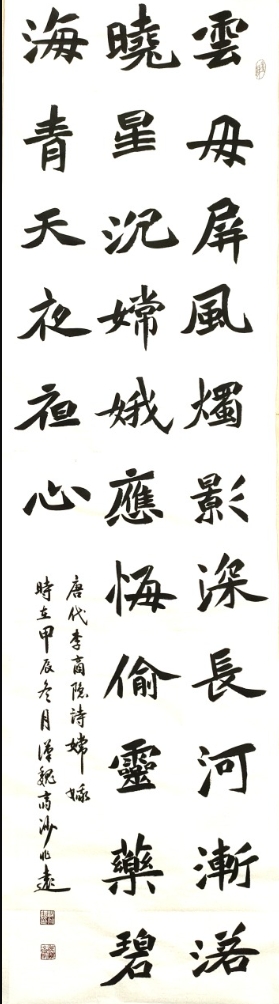 雲母屏風燭影深長河漸落
曉星沉嫦娥應悔偷靈藥碧
海青天夜夜心
唐代李商隐詩嫦娥
時在甲辰冬月漢魏高沙兆遠